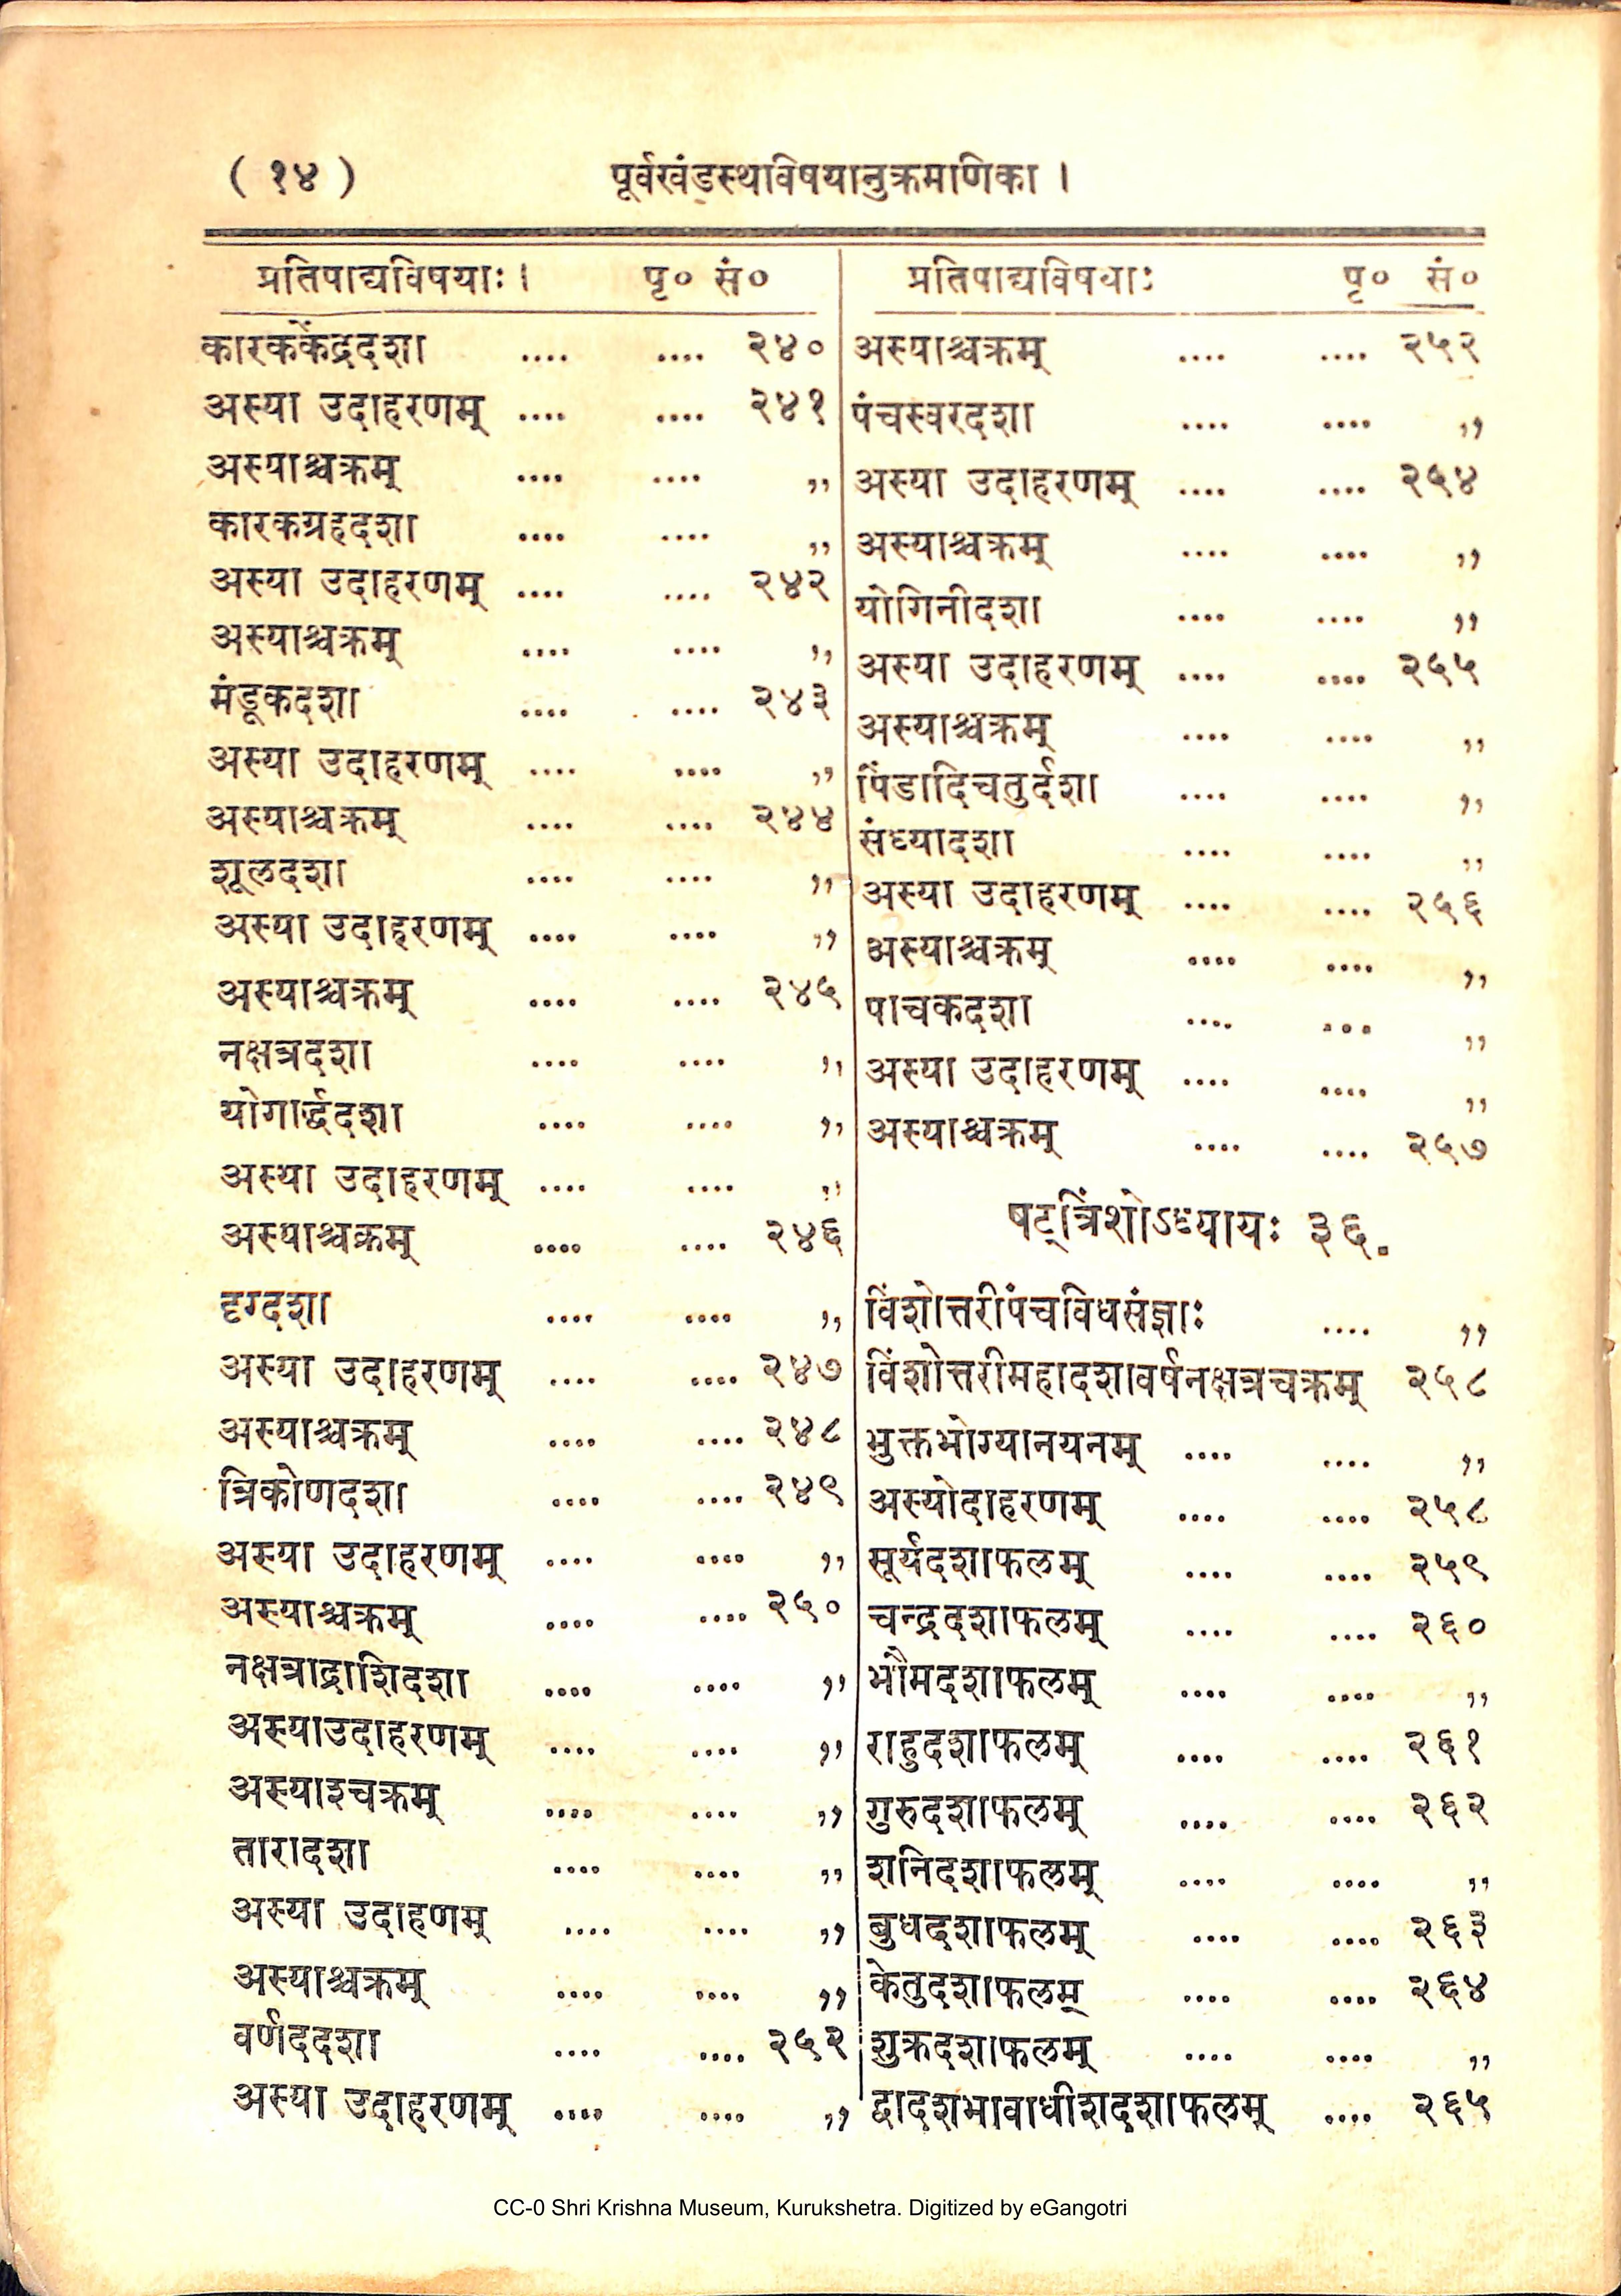 ( १४ ) पूर्वखंडस्थाविषयानुक्रमणिका ।
प्रतिपाद्यविषयाः । पृ० सं०
कारककेंद्रदशा .... .... २४०
अस्या उदाहरणम् .... .... २४१
अस्याश्चक्रम् .... .... ,,
कारकग्रहदशा .... .... ,,
अस्या उदाहरणम् .... .... २४२
अस्याश्चक्रम् .... .... ,,
मंडूकदशा .... .... २४३
अस्या उदाहरणम् .... .... ,,
अस्याश्चक्रम् .... .... २४४
शूलदशा .... .... ,,
अस्या उदाहरणम् .... .... ,,
अस्याश्चक्रम् .... .... २४५
नक्षत्रदशा .... .... ,,
योगार्द्धदशा .... .... ,,
अस्या उदाहरणम् .... .... ,,
अस्याश्चक्रम् .... .... २४६
दृग्दशा .... .... ,,
अस्या उदाहरणम् .... .... २४७
अस्याश्चक्रम् .... .... २४८
त्रिकोणदशा .... .... २४९
अस्या उदाहरणम् .... .... ,,
अस्याश्चक्रम् .... .... २५०
नक्षत्राद्राशिदशा .... .... ,,
अस्याउदाहरणम् .... .... ,,
अस्याश्चक्रम् .... .... ,,
तारादशा .... .... ,,
अस्या उदाहणम् .... .... ,,
अस्याश्चक्रम् .... .... ,,
वर्णददशा .... .... २५२
अस्या उदाहरणम् .... .... ,,
प्रतिपाद्यविषयाः पृ० सं०
अस्याश्चक्रम् .... .... २५२
पंचस्वरदशा .... .... ,,
अस्या उदाहरणम् .... .... २५४
अस्याश्चक्रम् .... .... ,,
योगिनीदशा .... .... ,,
अस्या उदाहरणम् .... .... २५५
अस्याश्चक्रम् .... .... ,,
पिंडादिचतुर्दशा .... .... ,,
संध्यादशा .... .... ,,
अस्या उदाहरणम् .... .... २५६
अस्याश्चक्रम् .... .... ,,
पाचकदशा .... ... ,,
अस्या उदाहरणम् .... .... ,,
अस्याश्चक्रम् .... .... २५७
षट्त्रिंशोऽध्यायः ३६.
विंशोत्तरीपंचविधसंज्ञाः .... ,,
विंशोत्तरीमहादशावर्षनक्षत्रचक्रम् २५८
भुक्तभोग्यानयनम् .... .... ,,
अस्योदाहरणम् .... .... २५८
सूर्यदशाफलम् .... .... २५९
चन्द्रदशाफलम् .... .... २६०
भौमदशाफलम् .... .... ,,
राहुदशाफलम् .... .... २६१
गुरुदशाफलम् .... .... २६२
शनिदशाफलम् .... .... ,,
बुधदशाफलम् .... .... २६३
केतुदशाफलम् .... .... २६४
शुक्रदशाफलम् .... .... ,,
द्वादशभावाधीशदशाफलम् .... २६५
CC-0 Shri Krishna Museum, Kurukshetra. Digitized by eGangotri